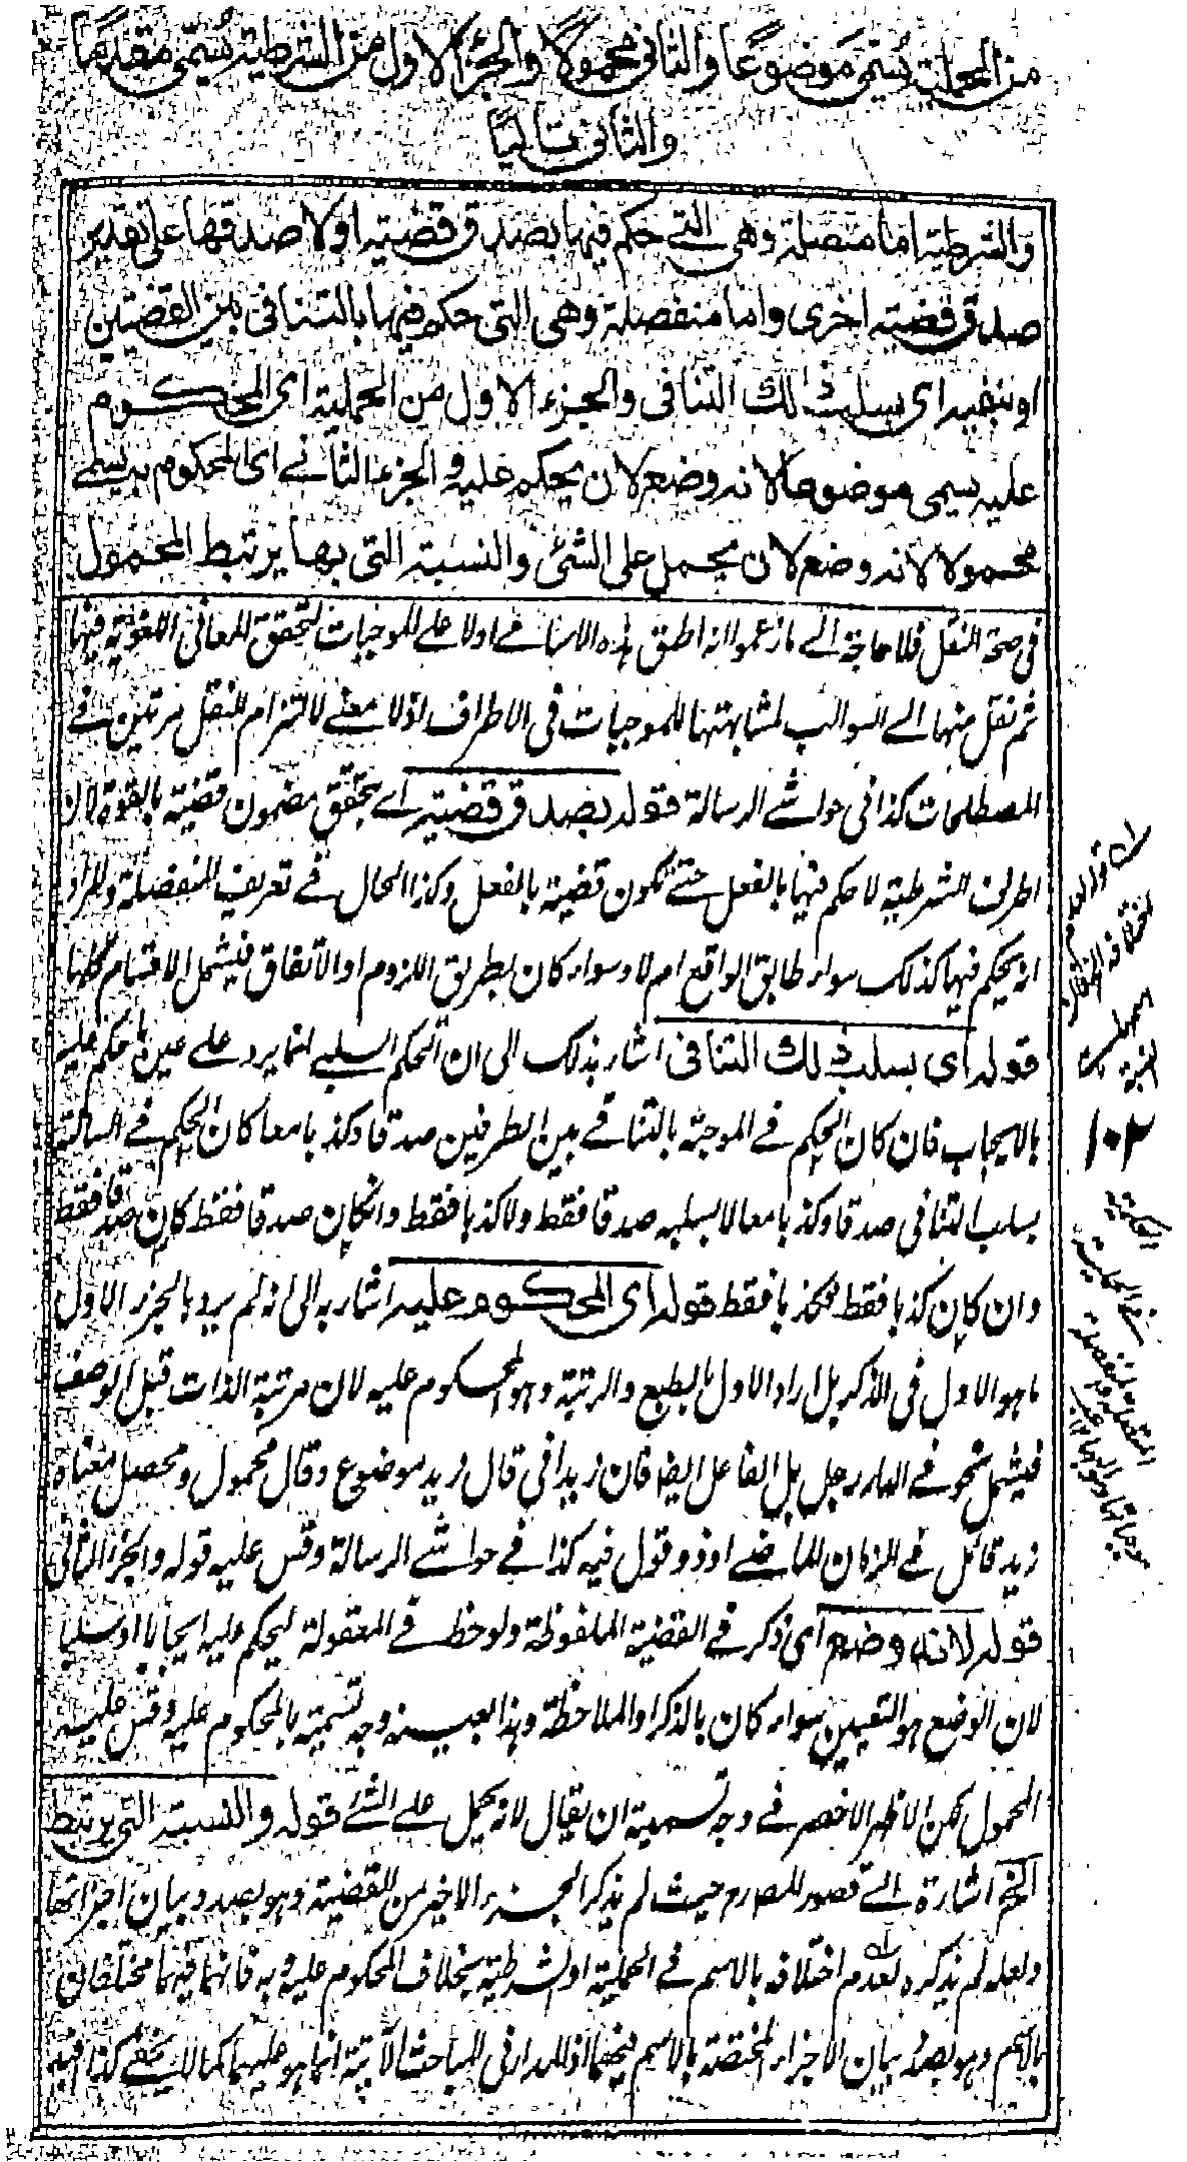 من الحملية يسمى موضوعا والثانى محمولا والجزء الاول من الشرطية يسمى مقدما
والثانى تاليا
والشرطية اما متصلة وهى التى حكم فيها بصدق قضية اولا صدقها على تقدير
صدق قضية اخرى واما منفصلة وهى التى حكم فيها بالتنافى بين القضيتين
او بنفيه اى بسلب ذلك التنافى والجزء الاول من الحملية اى المحكوم
عليه يسمى موضوعا لانه وضع لان يحكم عليه والجزء الثانے اى المحكوم به يسمے
محمولا لانه وضع لان يحمل على الشئ والنسبة التى بها يرتبط المحمول
فى صحة النقل فلا حاجة الے ما زعموا انه اطلق هذه الاسامے اولا علے الموجبات لتحقق المعانى اللغوية فيها
ثم نقل منها الے السوالب لمشابهتها للموجبات فى الاطراف اذ لا معنے لالتزام النقل مرتين فے
المصطلحات كذا فى حواشے الرسالة قوله بصدق قضية اے تحقق مضمون قضية بالقوة لان
اطراف الشرطية لا حكم فيها بالفعل حتے تكون قضية بالفعل وكذا الحال فے تعريف المنفصلة والمراد
انه يحكم فيها كذلك سواء طابق الواقع ام لا وسواء كان بطريق اللزوم او الاتفاق فيشمل الاقسام كلها
قوله اى بسلب ذلك التنافى اشار بذلك الى ان الحكم السلبے انما يرد علے عين ما حكم عليه
بالايجاب فان كان الحكم فے الموجبة بالتنافے بين الطرفين صدقا وكذبا معا كان الحكم فے السالبة
بسلب التنافى صدقا وكذبا معا لا بسلبه صدقا فقط ولا كذبا فقط وانكان صدقا فقط كان صدقا فقط
وان كان كذبا فقط فكذبا فقط قوله اى المحكوم عليه اشار به الى انه لم يرد بالجزء الاول
ما هو الاول فى الذكر بل اراد الاول بالطبع والرتبة وهو المحكوم عليه لان مرتبة الذات قبل الوصف
فيشمل نحو فے الدار رجل بل الفاعل ايضا فان زيدا فى قال زيد موضوع وقال محمول ومحصل معناه
زيد قائل فے الزمان الماضے او ذو قول فيه كذا فے حواشے الرسالة وقس عليه قوله والجزء الثانى
قوله لانه وضع اى ذكر فے القضية الملفوظة ولوحظ فے المعقولة ليحكم عليه ايجابا او سلبا
لان الوضع هو التعيين سواء كان بالذكر او الملاحظة وهذا بعينه وجه تسميته بالمحكوم عليه وقس عليه
المحمول لكن الاظهر الاخصر فے وجه تسميته ان يقال لانه يحمل علے الشئ قوله والنسبة التى يرتبط
الخ اشارة الے قصور المصرح حيث لم يذكر الجزء الاخير من القضية وهو بصدد بيان اجزائها
ولعله لم يذكره لعدم اختلافه بالاسم فے الحملية والشرطية بخلاف المحكوم عليه وبه فانهما فيهما مختلفان
بالاسم وهو بصدد بيان الاجزاء المختصة بالاسم فيهما اذ المدار فى المباحث الآتية انما هو عليهما كما لا يخفے كذا قيل
اے قوله لعدم
اختلافه
١٠٢